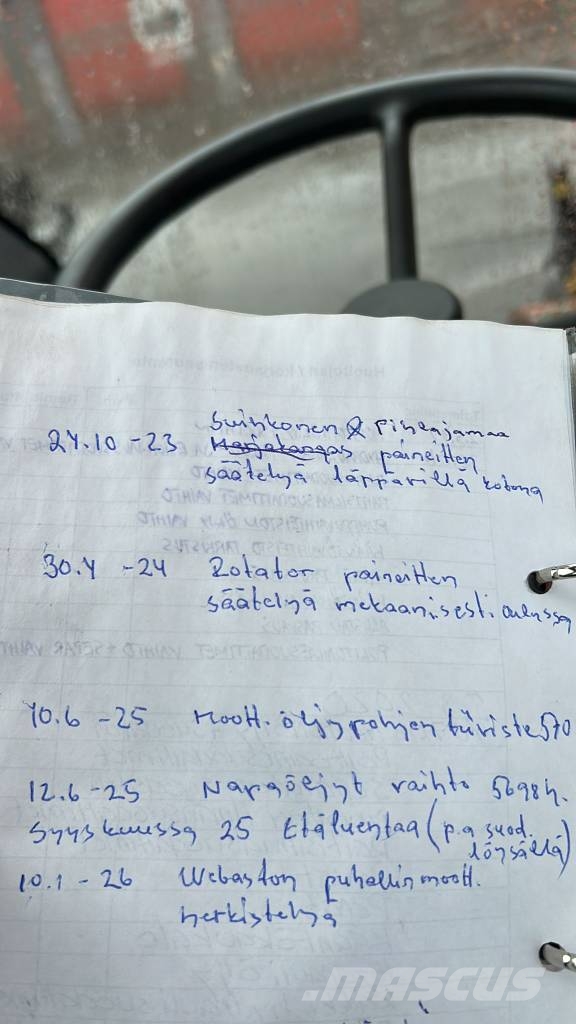 Suihkonen & Pihlajamaa
24.10 -23 Harjakangas paineitten
säätelyä läppärillä kotona
30.4 -24 Rotator paineitten
säätelyä mekaanisesti
10.6 -25 Moott. öljypohjen tiiviste
12.6-25 Napaöljyt vaihto 5698h.
Syyskuussa 25 Etäluentaa (p.a suod.
löysällä)
10.1 -26 Webaston puhallinmoott.
herkistelyä
MASCUS